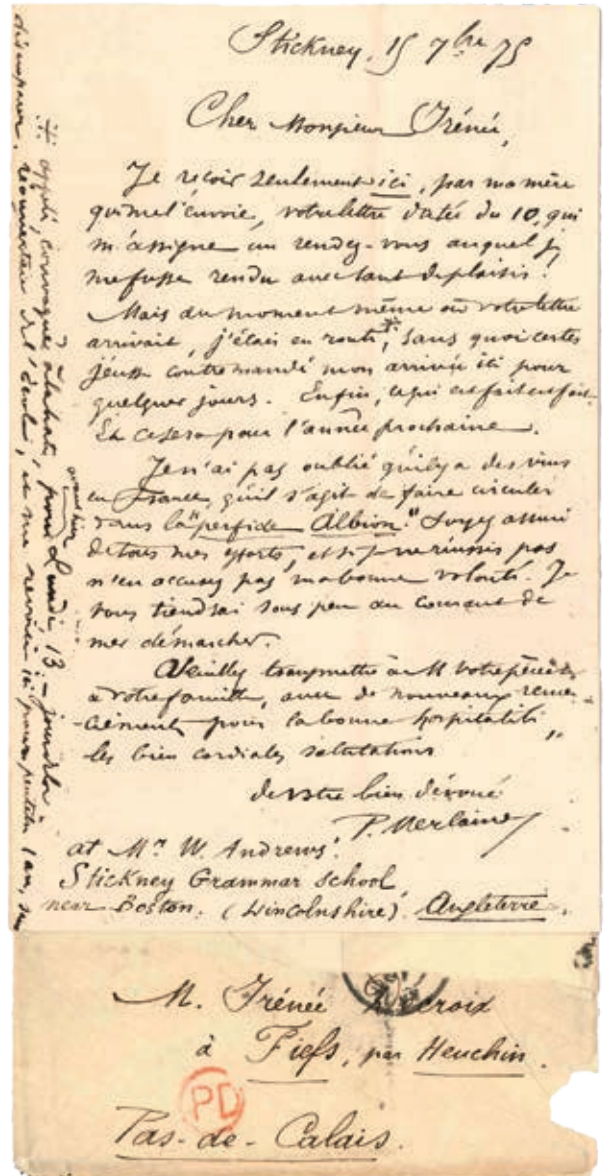 Stickney, 15 7bre 75
Cher Monsieur Irénée,
Je reçois seulement ici, par ma mère
qui me l'envoie, votre lettre datée du 10, qui
m'assigne un rendez-vous auquel je
me fusse rendu avec tant de plaisir !
Mais du moment même où votre lettre
arrivait, j'étais en route, sans quoi certes
j'eusse contremandé mon arrivée ici pour
quelques jours. Enfin, ce qui est fait est fait.
Et ce sera pour l'année prochaine.
Je n'ai pas oublié qu'il y a des vins
en France, qu'il s'agit de faire circuler
dans la "perfide Albion." Soyez assuré
de tous mes efforts, et si je ne réussis pas
n'en accusez pas ma bonne volonté. Je
vous tiendrai sous peu au courant de
mes démarches.
Veuillez transmettre à M votre père &
à votre famille, avec de nouveaux remer-
ciements pour la bonne hospitalité,
les bien cordiales salutations
de votre bien dévoué
P. Verlaine
at Mr W. Andrews'.
Stickney Grammar School,
near Boston. (Lincolnshire). Angleterre.
convoqué à la hâte, pour Lundi, 13 - jour de la
réouverture de l'école, et me revoici ici pour peut-être 1 an,
avant hier
M. Irénée Decroix
à Fiefs, par Heuchin.
PD
Pas-de-Calais.